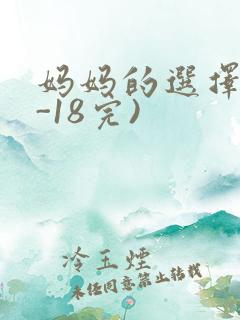 妈妈的選擇
-18完)
冷玉煙
未任同意禁止转载